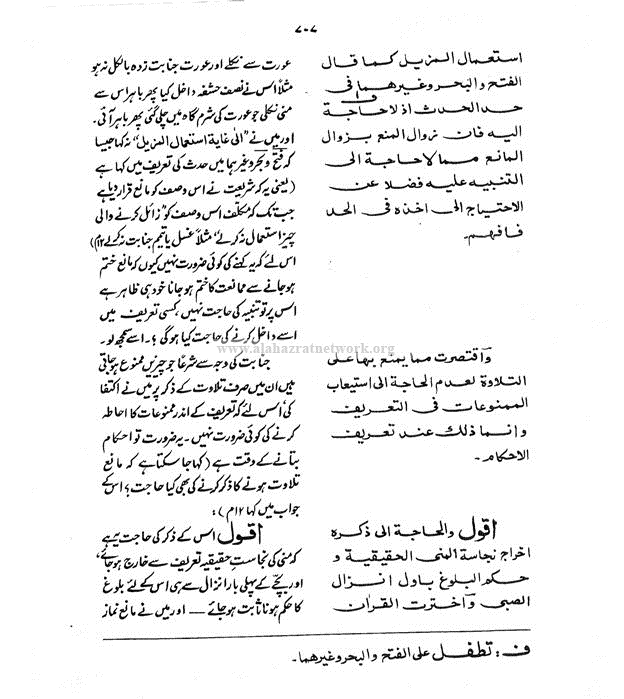 ۷۰۷
استعمال المزیل کما قال
الفتح والبحر وغیرھما فی
حد الحدث اذ لاحاجۃ
الیہ فان زوال المنع بزوال
المانع ممالاحاجۃ الی
التنبیہ علیہ فضلا عن
الاحتیاج الی اخذہ فی الحد
فافھم۔
واقتصرت مما یمنع بھا علی
التلاوۃ لعدم الحاجۃ الی استیعاب
الممنوعات فی التعریف
وانما ذلک عند تعریف
الاحکام۔
اقول والحاجۃ الی ذکرہ
اخراج نجاسۃ المنی الحقیقیۃ و
حکم البلوغ باول انزال
الصبی واخترت القراٰن
عورت سے نکلے اور عورت جنابت زدہ بالکل نہ ہو
مثلاً اس نے نصف حشفہ داخل کیا پھر باہر اس سے
منی نکلی جو عورت کی شرم گاہ میں چلی گئی پھر باہر آئی۔
اور میں نے "الٰی غایۃ استعمال المزیل" نہ کہا جیسا
کہ فتح و بحر وغیرہما میں حدث کی تعریف میں کہا ہے
(یعنی یہ کہ شریعت نے اس وصف کو مانع قرار دیا ہے
جب تک کہ مکلف اس وصف کو "زائل کرنے والی
چیز استعمال نہ کرلے" مثلاً غسل یا تیمم جنابت نہ کرلے ۱۲م)
اس لئے کہ یہ کہنے کی کوئی ضرورت نہیں کیوں کہ مانع ختم
ہوجانے سے ممانعت کا ختم ہوجانا خود ہی ظاہر ہے
اس پر تو تنبیہ کی حاجت نہیں، کسی تعریف میں
اسے داخل کرنے کی حاجت کیا ہوگی؟۔ اسے سمجھ لو۔
جنابت کی وجہ سے شرعاً جو چیزیں ممنوع ہوجاتی
ہیں ان میں صرف تلاوت کے ذکر پر میں نے اکتفا
کی اس لئے کہ تعریف کے اندر ممنوعات کا احاطہ
کرنے کی کوئی ضرورت نہیں۔ یہ ضرورت تو احکام
بتانے کے وقت ہے (کہا جاسکتا ہے کہ مانع
تلاوت ہونے کا ذکر کرنے کی بھی کیا حاجت؟ اسکے
جواب میں کہا ۱۲م):
اقول اس کے ذکر کی حاجت یہ ہے
کہ منی کی نجاست حقیقیہ تعریف سے خارج ہوجائے،
اور بچّے کے پہلی بار انزال سے ہی اس کے لئے بلوغ
کا حکم ہونا ثابت ہوجائے ــــ اور میں نے مانع نماز
ف: تطفل علی الفتح والبحر وغیرھما۔
www.alahazratnetwork.org